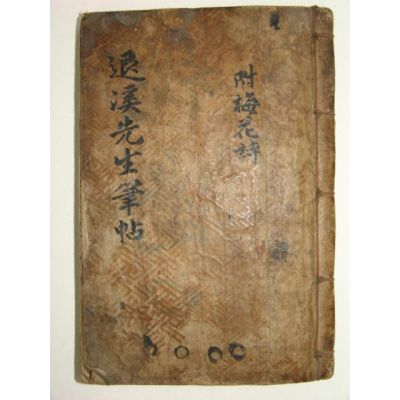 退溪先生筆帖
附梅花詩